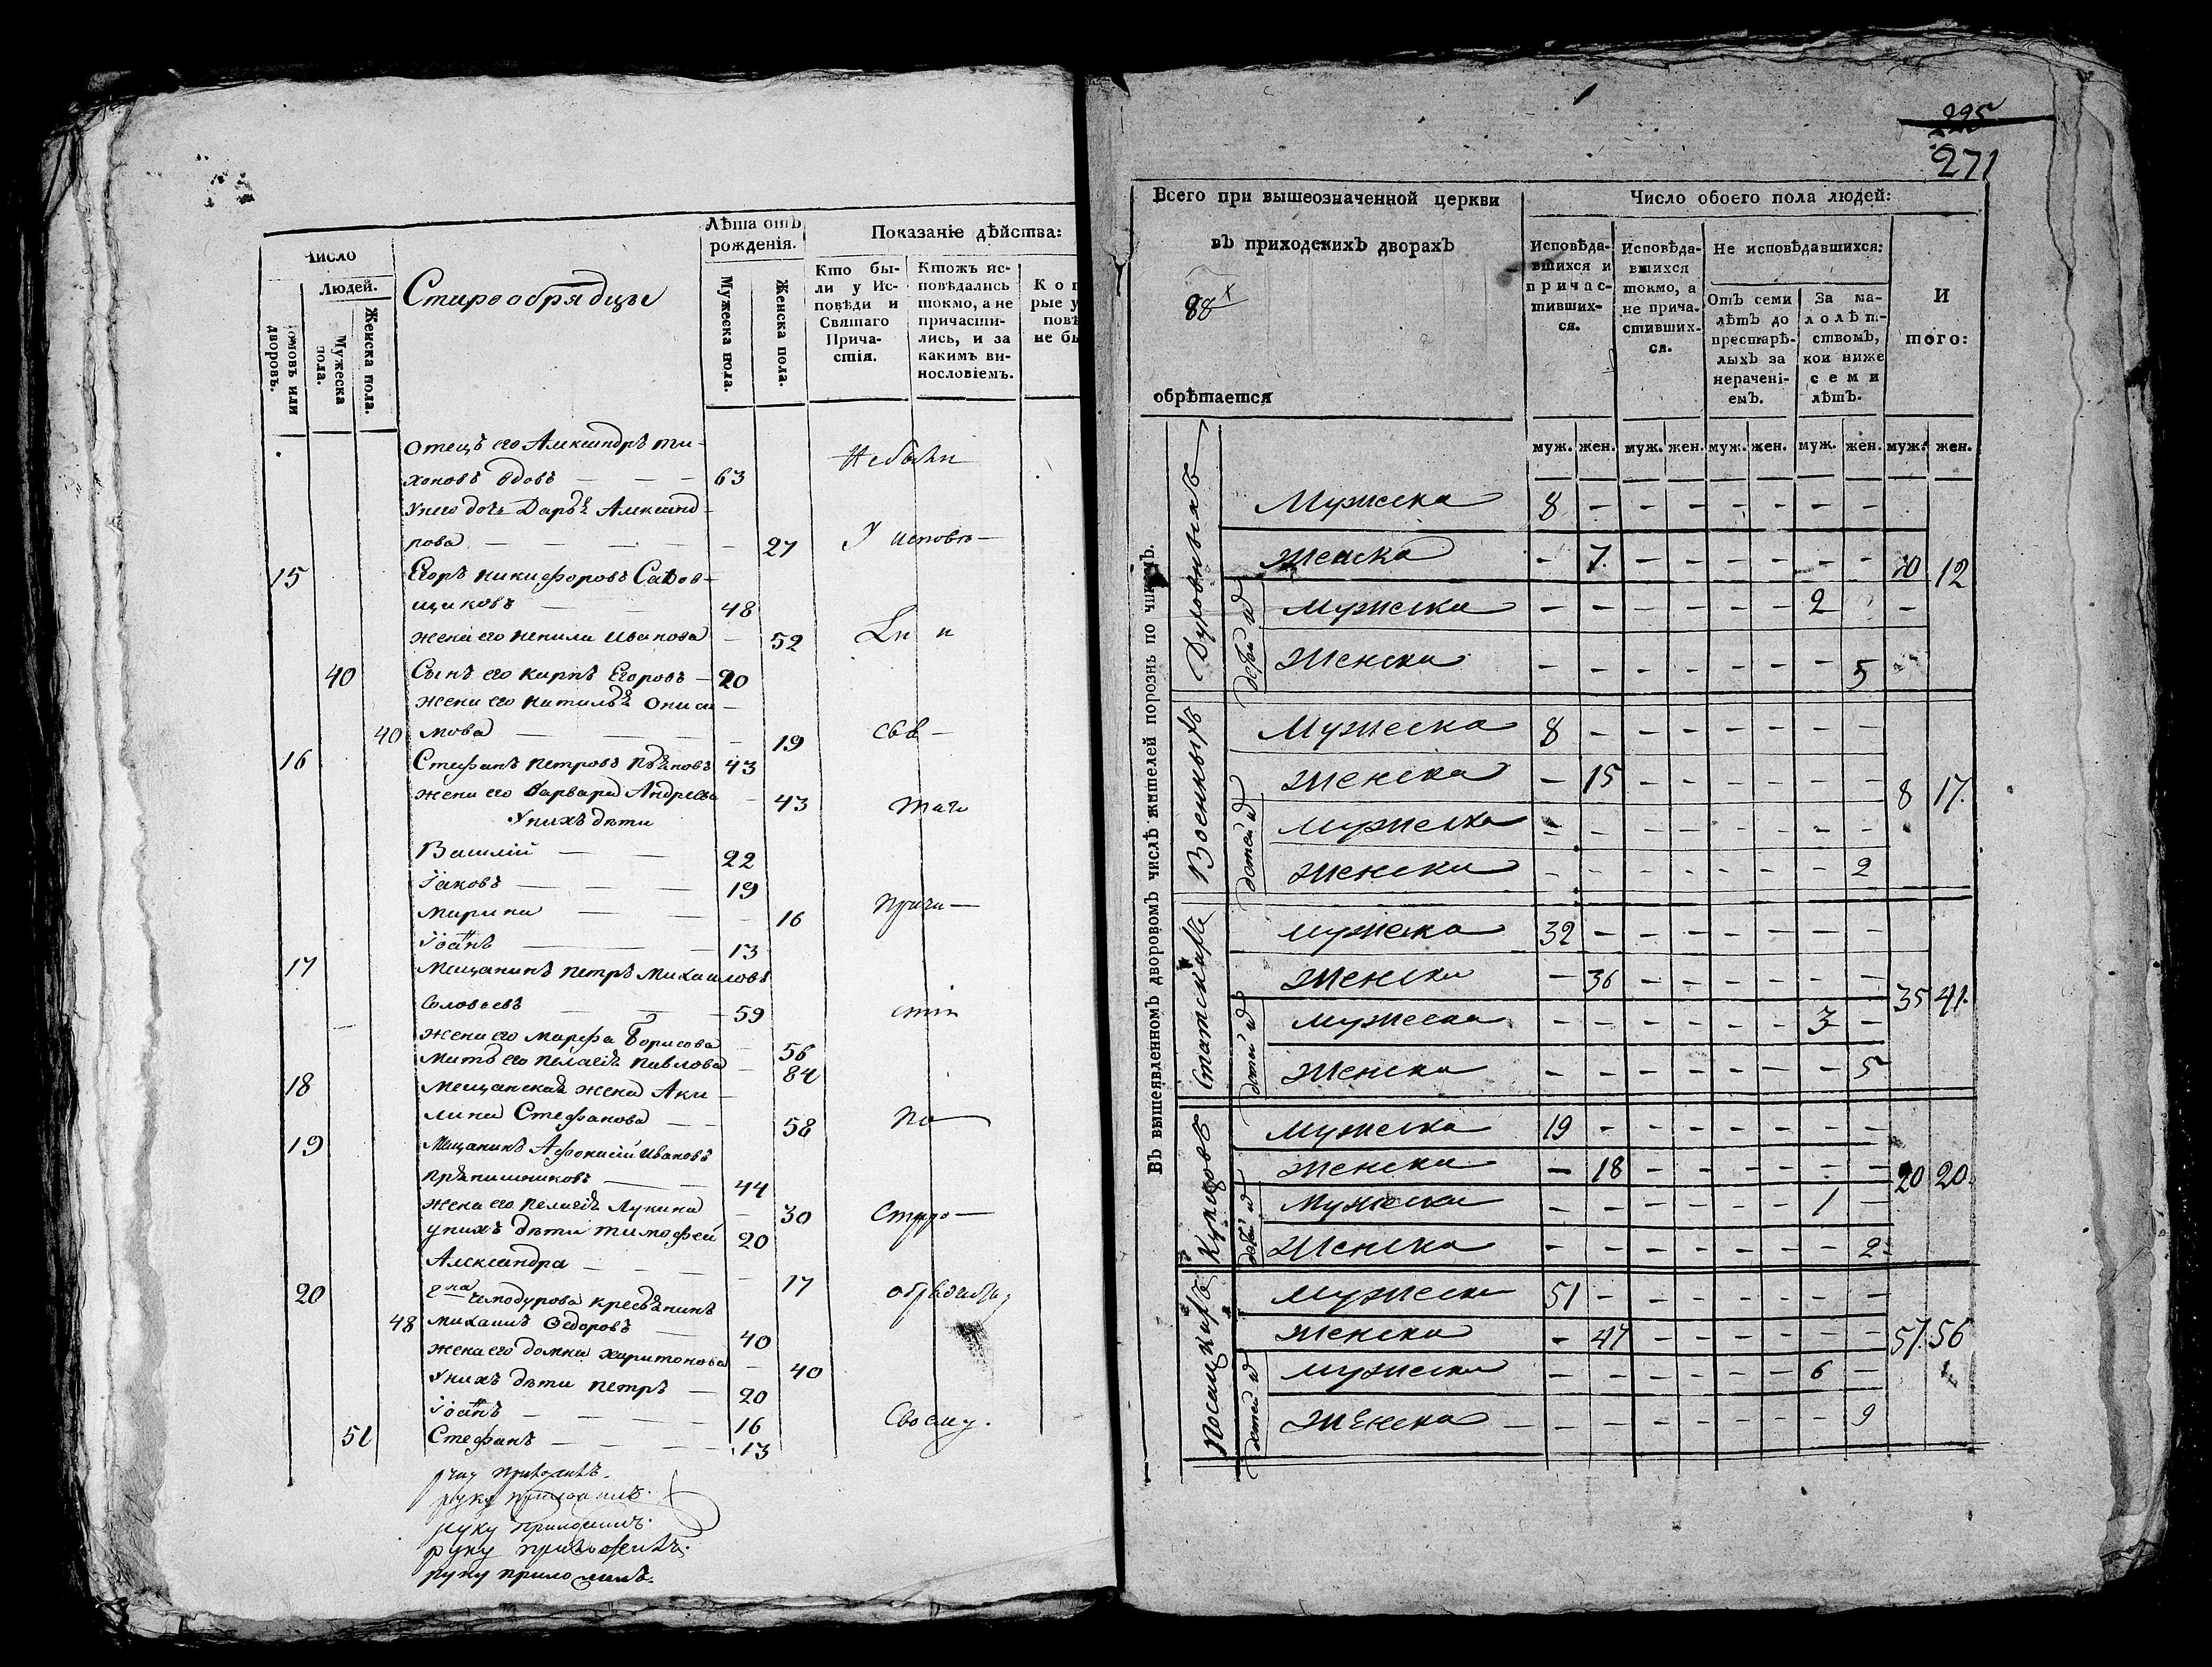 Число
Людей.
домовъ или дворовъ.
Мужеска пола.
Женска пола.
Старообрядцы
Лѣта отъ рожденія.
Мужеска пола.
Женска пола.
Показаніе дѣйства:
Кто бы-
ли у Ис-
повѣди и
Святаго
Прича-
стія.
Ктожъ ис-
повѣдались
токмо, а не
причасти-
лись, и за
какимъ ви-
нословіемъ.
Кот
рые у
повѣ
не бы
Отецъ его Александръ Ти-
хоновъ вдовъ — — — 63 Небыли
У него дочь Дарья Александ-
рова — — — — 27 У исповѣ-
15 Егоръ Никифоровъ Садов-
щиковъ — — 48
жена его Ненила Иванова — 52
40 Сынъ его Карпъ Егоровъ — 20
жена его Наталья Ониси-
40 мова — — — 19 свя-
16 Стефанъ Петровъ 43
жена его Варвара Андреева — 43 таго
У нихъ дѣти
Василій — — 22
Іаковъ — — — 19
Марина — — — 16 прича-
Іоаннъ — — 13
17 Мещанинъ Петръ Михаиловъ
Соловьевъ — — — 59 стія
жена его Марфа Борисова — 56
Мать его Пелагія Павлова — 84
18 Мещанская жена Аки-
лина Стефанова — — 58 по
19 Мещанинъ Афонасій Ивановъ
44
жена его Пелагія Лукина — 30 Старо-
у нихъ дѣти Тимофей 20
Александра — — — 17 обрядству
20 крестьянинъ
48 Михаилъ Федоровъ — 40
жена его Домна Харитонова — 40
У нихъ дѣти Петръ — 20
Іоаннъ — — — 16 Своему.
51 Стефанъ — — — 13
руку приложилъ.
руку приложилъ.
руку приложилъ.
руку приложилъ.
руку приложилъ.
225
271
Всего при вышеозначенной церкви
въ приходскихъ дворахъ
88
обрѣтается
Число обоего пола людей:
Исповѣда-
вшихся и
причас-
тивших-
ся.
Исповѣда-
вшихся
токмо, а
не прича-
стивших-
ся.
Не исповѣдавшихся:
Отъ семи
лѣтъ до
престарѣ-
лыхъ за
нерачені-
емъ.
За ма-
лолѣт-
ствомъ,
кои ниже
семи
лѣтъ.
И
того:
муж. жен. муж. жен. муж. жен. муж. жен. муж. жен.
Въ вышеявленномъ дворовомъ числѣ жителей порознь по чинамъ.
Духовныхъ
Мужеска 8 - - - - - - -
Женска - 7. - - - - - - 10 12
дѣтей ихъ
Мужеска - - - - - - 2 -
Женска - - - - - - - 5
Военныхъ
Мужеска 8 - - - - - - -
Женска - 15 - - - - - - 8 17.
детей ихъ
Мужеска - - - - - - - -
Женска - - - - - - - 2
Статскихъ
Мужеска 32 - - - - - - -
Женска - 36 - - - - - - 35 41.
детей ихъ
Мужеска - - - - - - 3 -
Женска - - - - - - - 5
Купцовъ
Мужеска 19 - - - - - - -
Женска - 18 - - - - - - 20 20.
дѣтей ихъ
Мужеска - - - - - - 1 -
Женска - - - - - - - 2.
Посацкихъ
Мужеска 51 - - - - - - -
Женска - 47 - - - - - - 57. 56
детей ихъ
Мужеска - - - - - - 6 -
Женска - - - - - - - 9